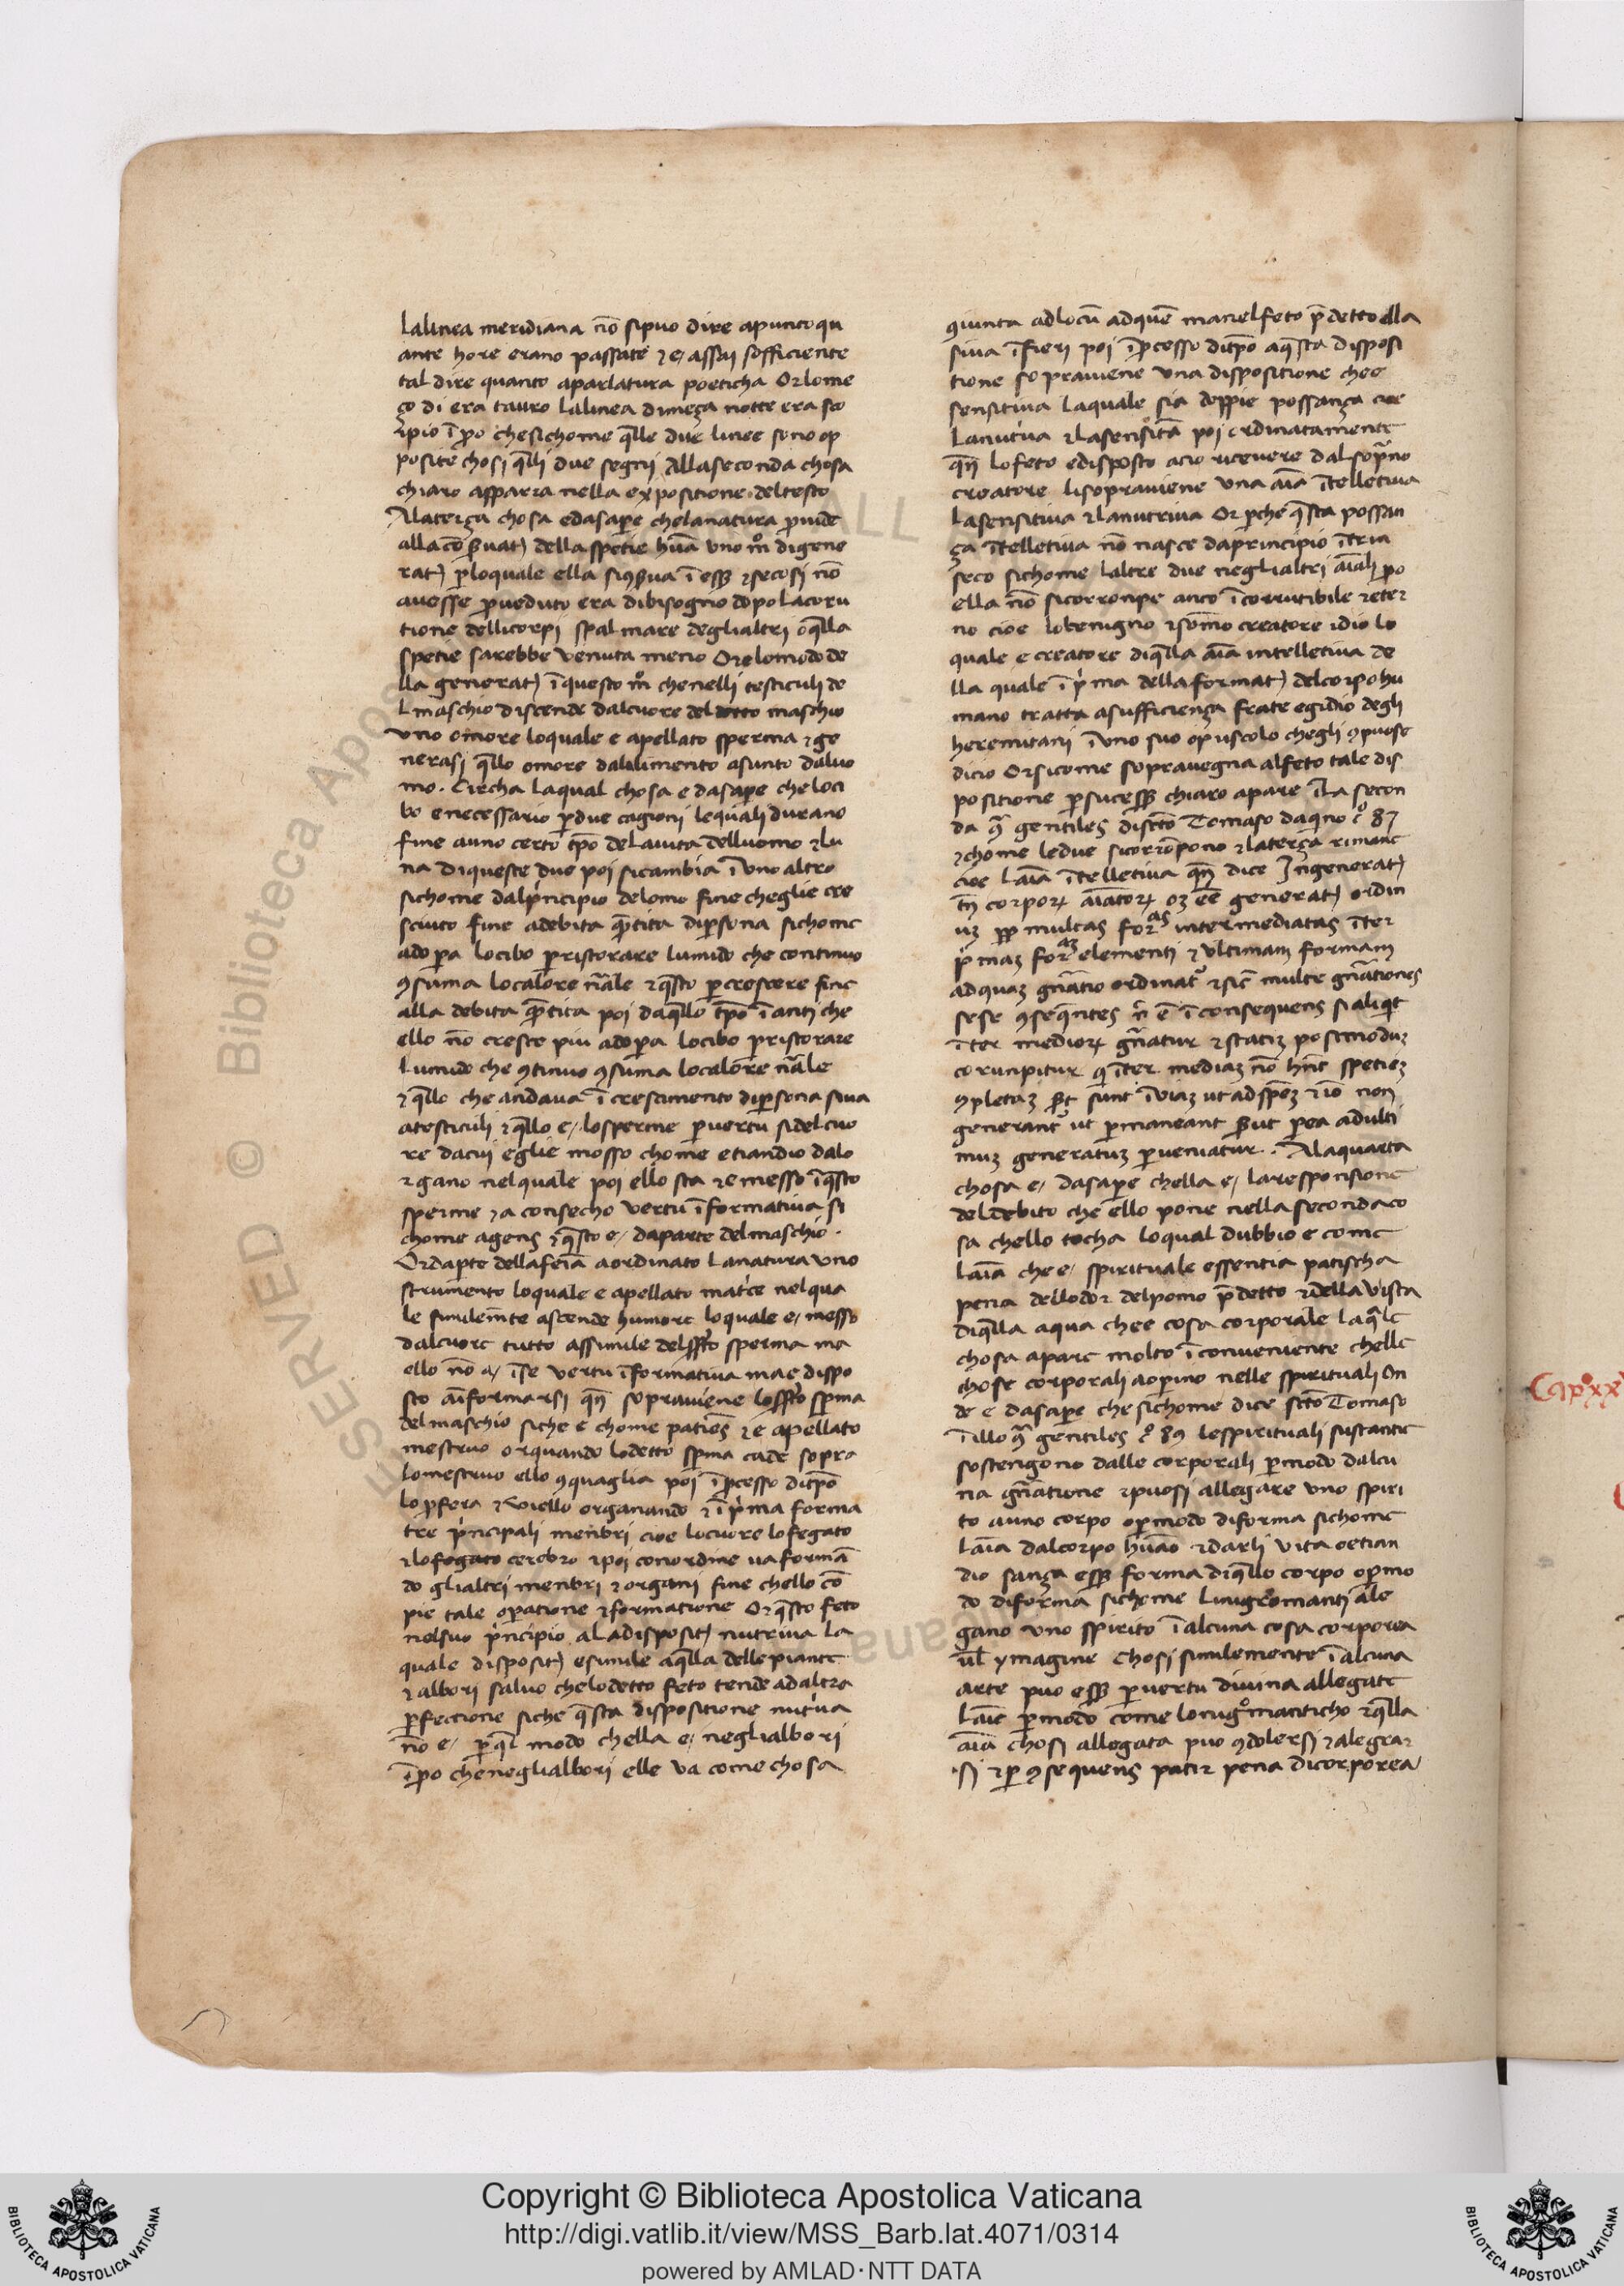 lalinea meridiana nō sipuo dire apunto qu
ante hore erano passate ⁊ e assai soficiente
tal dire quanto aparlatura poeticha Or lome
ço di era tauro lalinea dimeça notte era sco
rpio ī ꝑo chesichome q̄lle due linee sono op
posite chosi q̄lli due segnii Allaseconda chosa
chiaro apparra nella expositione deltesto
Alaterça chosa edasapere chelanatura ꝓuide
della spetie hūa uno mo digene
ꝑloquale ella ī ⁊secosi nō
auesse ꝓueduto era dibisogno dopo lacoru
tione dellicorpi spal mare deglialtri q̄lla
spetie sarebbe uenuta meno Or lomodo de
lla generat īquesto mo chenelli testiculi de
l maschio discende dalcuore del detto maschio
uno omore loquale e apellato sperma ⁊ ge
nerasi q̄llo omore dalalimento asunto daluo
mo. Circha laqual chosa e dasapere che loci
bo enecessario ꝑdue cagioni lequali durano
fine auno certo tp̄o delauita delluomo ⁊ lu
na diqueste due poi sicambia ī uno altro
sichome dalprincipio delomo fine cheglie cre
sciuto fine adebita q̄ntita diꝑsona sichome
adoꝑa locibo ꝑristorare lumido che continuo
ꝯsuma localore nāle ⁊q̄sto ꝑcrescere fine
alla debita q̄ntita poi daq̄llo tp̄o ī anti che
ello nō cresce piu adoꝑa locibo ꝑristorare
lumido che ꝯtinuo ꝯsuma localore nāle
⁊q̄llo che andaua ī crescimento diꝑsona siua
atesticuli ⁊q̄llo e losperme ꝑuertu sidelcuo
re dacui eglie mosso chome etiandio dalo
rgano nelquale poi ello sta ⁊ e messo īq̄sto
sperme ⁊ a consecho uertu īformatiua si
chome agens ⁊q̄sto e daparte delmaschio.
Ordaꝑte dellafeīa aordinato lanatura uno
strumento loquale e apellato matrice nelqua
le similemēte ascende humore loquale e messo
dalcuore tutto assimile sperma ma
ello nō a īse uertu īformatiua mae dispo
sto soprauiene sꝑma
delmaschio siche e chome patiens ⁊e apellato
mestruo orquando lodetto sꝑma cade sopra
lomestruo ello ꝯquaglia poi ī ꝓcesso ditp̄o
⁊ organando ⁊ ī prima forma
tre principali menbri cioe locuore lofegato
⁊lo cerebro ⁊poi conordine ua formā
do glialtri menbri ⁊organi fine chello cō
pie tale oꝑatione ⁊formatione Or q̄sto feto
nelsuo principio a ladisposit nutritiua la
quale disposit esimile aq̄lla dellepiante
⁊albori saluo chelodetto feto tende adaltra
ꝑfectione siche q̄sta dispositione nutriua
nō e ꝑq̄l modo chella e neglialbori
īꝑo cheneglialbori elle ua come chosa
giunta adlocū adquē manelfeto p̄detto ella
siua īfieri poi īꝓcesso ditp̄o aq̄sta disposi
tione sopraуiene una dispositione chee
sensitiua laquale sia doppie possança cioe
lanutriua ⁊lasensitiua poi ordinatamente
lofeto edisposto acio riceuere dalsoprano
creatore lisoprauiene una aīa ītelletiua
lasensitiua ⁊lanutritiua Or ꝑche q̄sta possan
ça ītelletiua nō nasce daprincipio ītrin
seco sichome laltre due neglialtri aīali ꝑo
ella nō sicorronpe anco īcorrutibile ⁊eter
no cioe lobenigno ⁊sōmo creatore idio lo
quale e creatore diq̄lla aīa intelletiua de
lla quale ī prima dellaformat delcorpo hu
mano tratta asufficiença frate egidio degli
heremitani ī uno suo opuscolo chegli ꝯpuose
dicio Orsicome soprauegna alfeto tale dis
positione ꝑsucess chiaro apare ī la secon
da q̄ gentiles discto Tomaso daquino co 87
⁊chome ledue sicorrōpono ⁊laterça rimane
cioe laīa ītelletiua dice In generat
corpoꝝ aīatoꝝ generat ordin
multas foras intermediatas īter
primaꝫ foraꝫ elementi ⁊ ultimam formam
adquaꝫ gn̄atio ordinat ⁊sic multe gn̄ationes
sese ꝯseq̄ntes ī consequens si aliqt
īter medioꝝ gn̄atur ⁊statiꝫ postmoduꝫ
corunpitur q īter mediaꝫ nō hn̄t spetieꝫ
ꝯpletaꝫ sunt ī uiaꝫ ut adspēꝫ ⁊iō non
generantr ut ꝑmaneant ꝑea adulti
muꝫ generatuꝫ ꝑueniatur. Alaquarta
chosa e dasapere chella e laresponsione
deldebito che ello pone nella seconda co
sa chello tocha loqual dubbio e come
laīa che e spirituale essentia patischa
pena dellodor delpomo p̄detto ⁊della uista
diq̄lla aqua chee cosa corporale laq̄le
chosa apare molto īconueniente chelle
chose corporali aoꝑino nelle spirituali On
de e dasapere che sichome dice scto Tomaso
ī illo q̄ gentiles co 89 lespirituali sustantie
sostengono dalle corporali ꝑmodo dalcu
na gn̄atione ⁊puosi allegare uno spiri
to auno corpo oꝑmodo diforma sichome
laīa dalcorpo hūano ⁊darli uita oetian
dio sança ess forma diq̄llo corpo oꝑmo
do diforma sichome linigromanti ale
gano uno spirito ī alcuna cosa corporea
ul ymagine chosi similemente ī alcuna
arte puo ess ꝑuertu diuina allegate
laīe ꝑmodo come lonigromanticho ⁊q̄lla
aīa chosi allegata puo ꝯdolersi ⁊alegrar
si ⁊ꝑ ꝯsequens patir pena dicorporea
Capo xx
Copyright © Biblioteca Apostolica Vaticana
http://digi.vatlib.it/view/MSS_Barb.lat.4071/0314
powered by AMLAD·NTT DATA
BIBLIOTECA APOSTOLICA VATICANA
BIBLIOTECA APOSTOLICA VATICANA